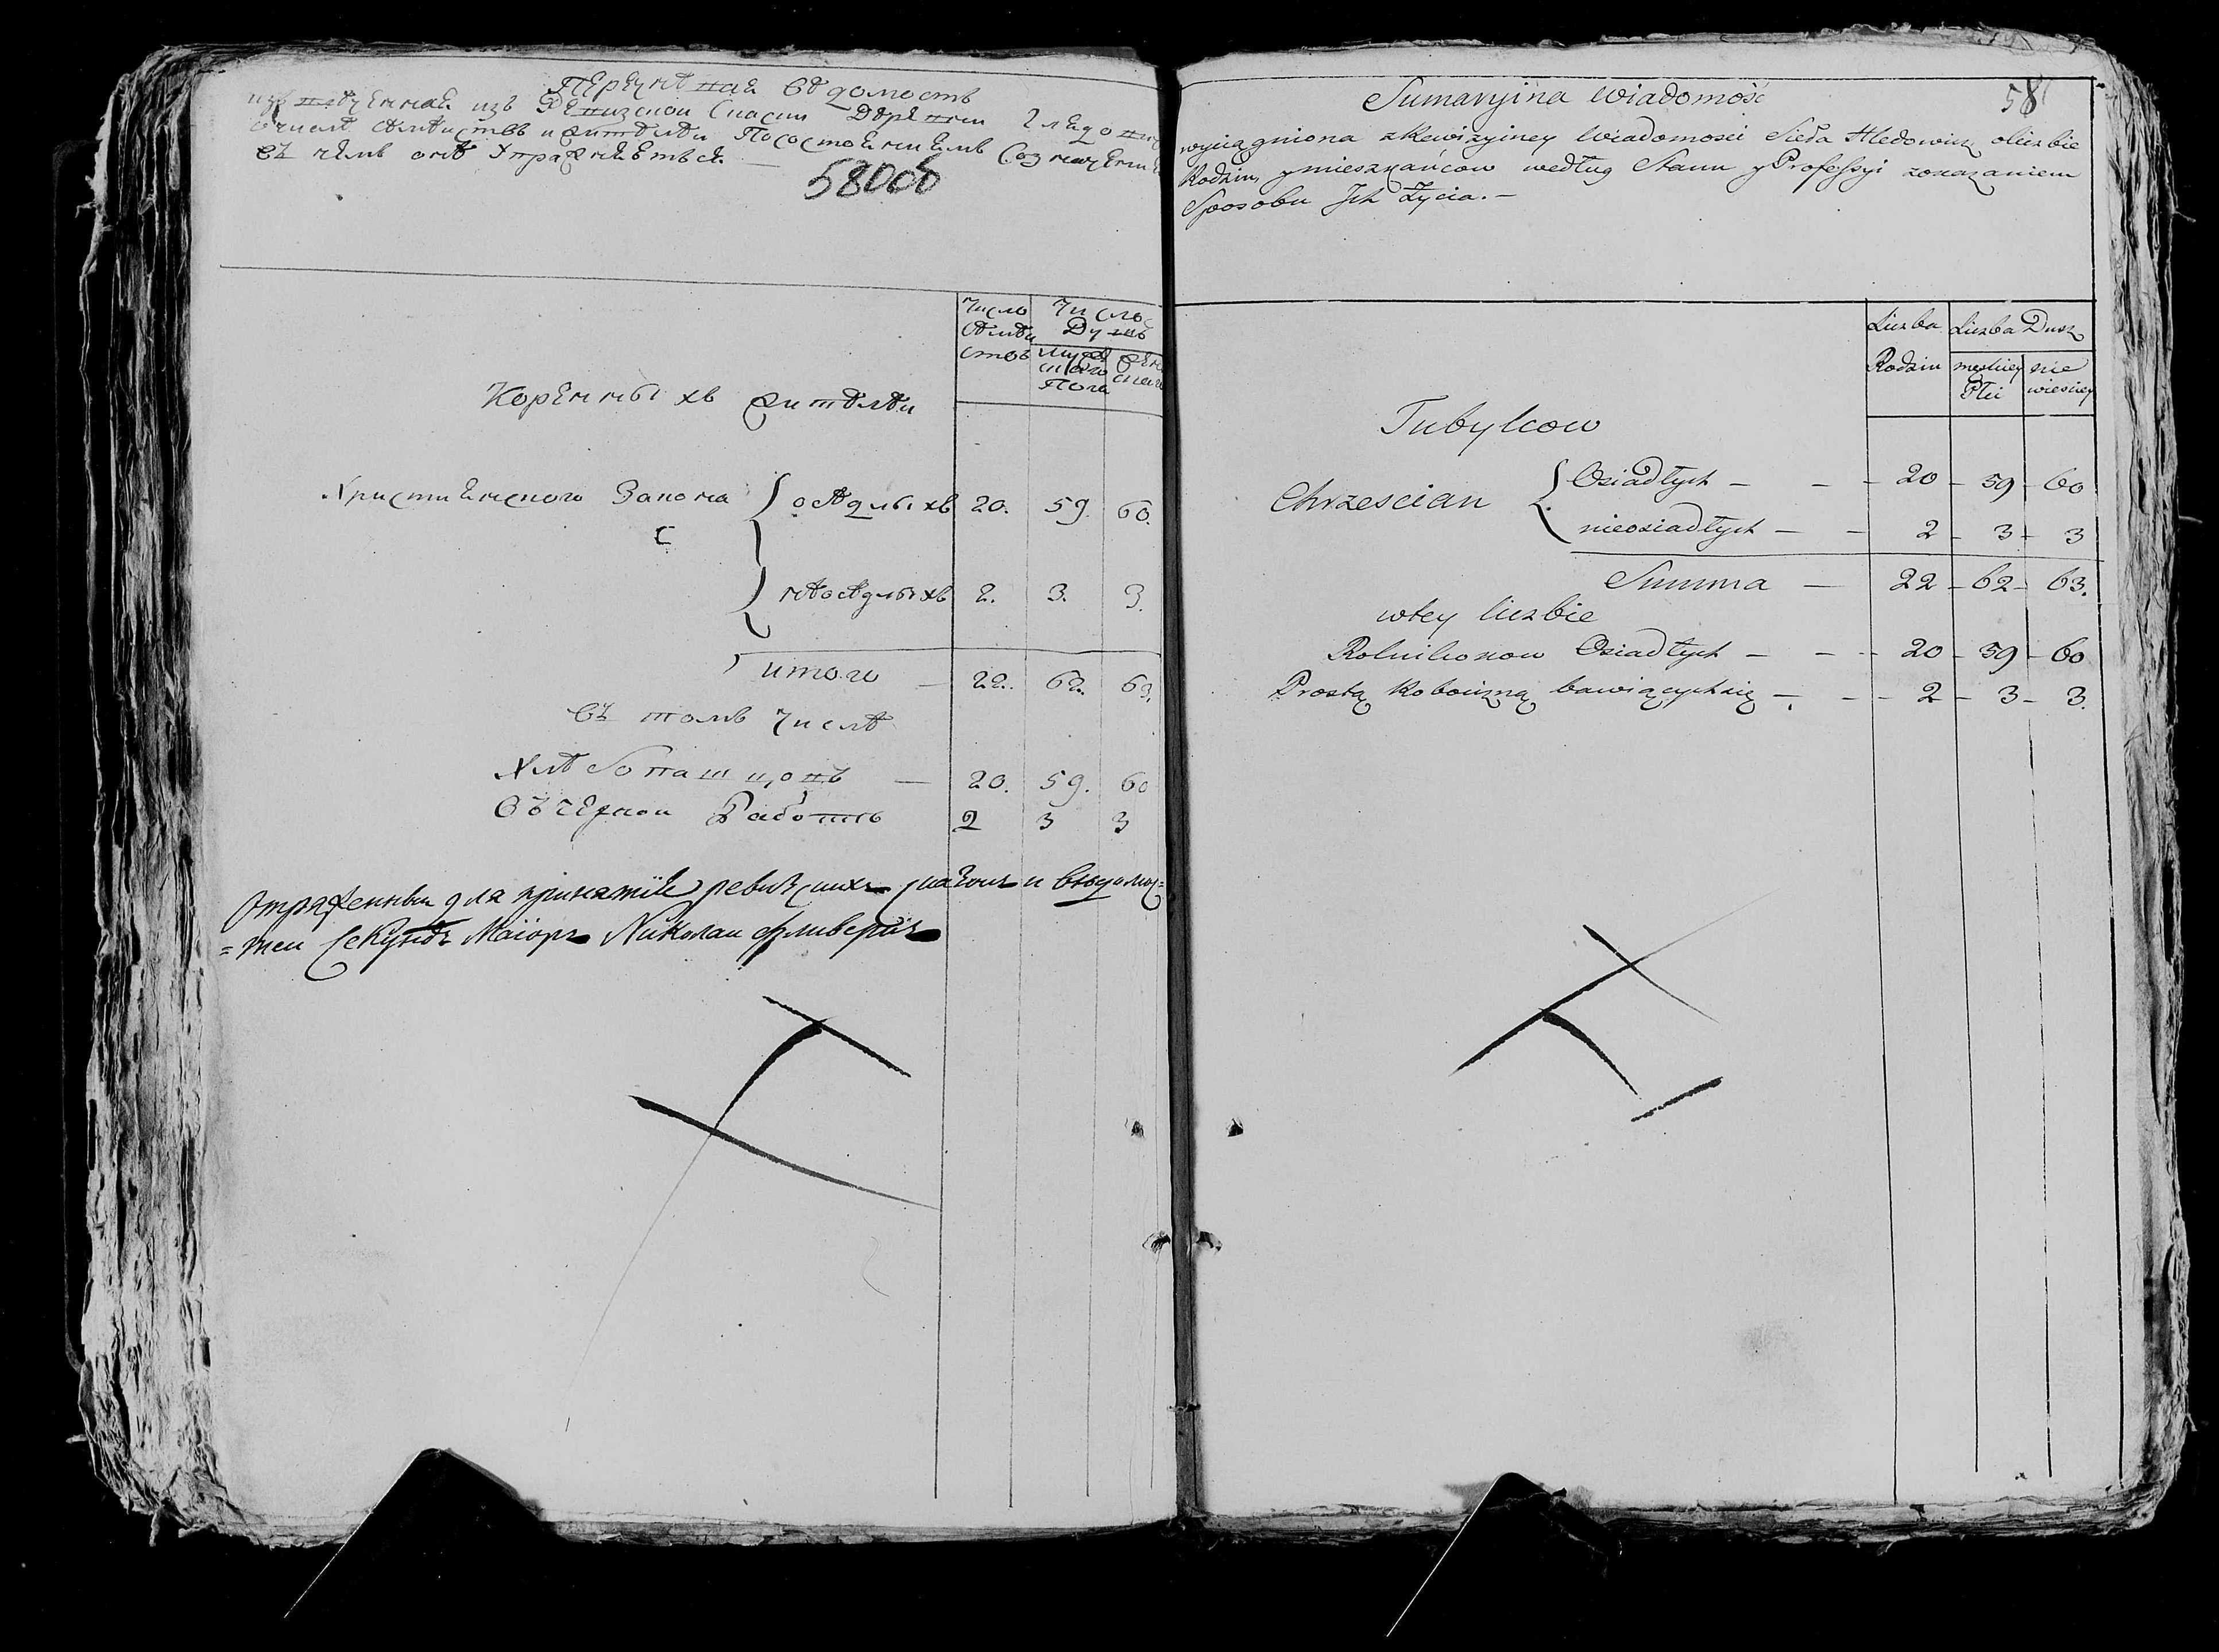 Перечневая Ведомость
из Ревизской Сказки Деревни
о числе семейства и жителей По состоянием
в чем оне Упражняется —
58 об
Число семействъ
Число Душъ
мужскаго Пола
женскаго
Коренныхъ жителей
Християнского Закона
оседлыхъ 20. 59. 60.
неоседлыхъ 2. 3. 3.
итого — 22. 62. 63.
въ томъ числе
Хлебопашцовъ — 20. 59. 60
въ черной Работе 2 3 3
Отряженный для принятия ревизских сказок и ведомос=
=тей Секундъ Маіоръ Николай
58
Sumaryina Wiadomość
wyciągniona z Rewizyiney Wiadomosci Sieła Hledowicz o liczbie
Rodzin, y mieszkańcow według Stanu y Professyi z okazaniem
Sposobu Jch Życia. —
Liczba Rodzin
Liczba Dusz
męskiey Płci
niewiesciey
Tubylcow
Chrzescian
Osiadłych — — — 20 — 59 — 60
nieosiadłych — — 2 — 3 — 3
Summa — 22 — 62 — 63.
w tey liczbie
Rolnikonow Osiadłych — — — 20 — 59 — 60
Prostą Robocizną bawiących się — — — 2 — 3 — 3.